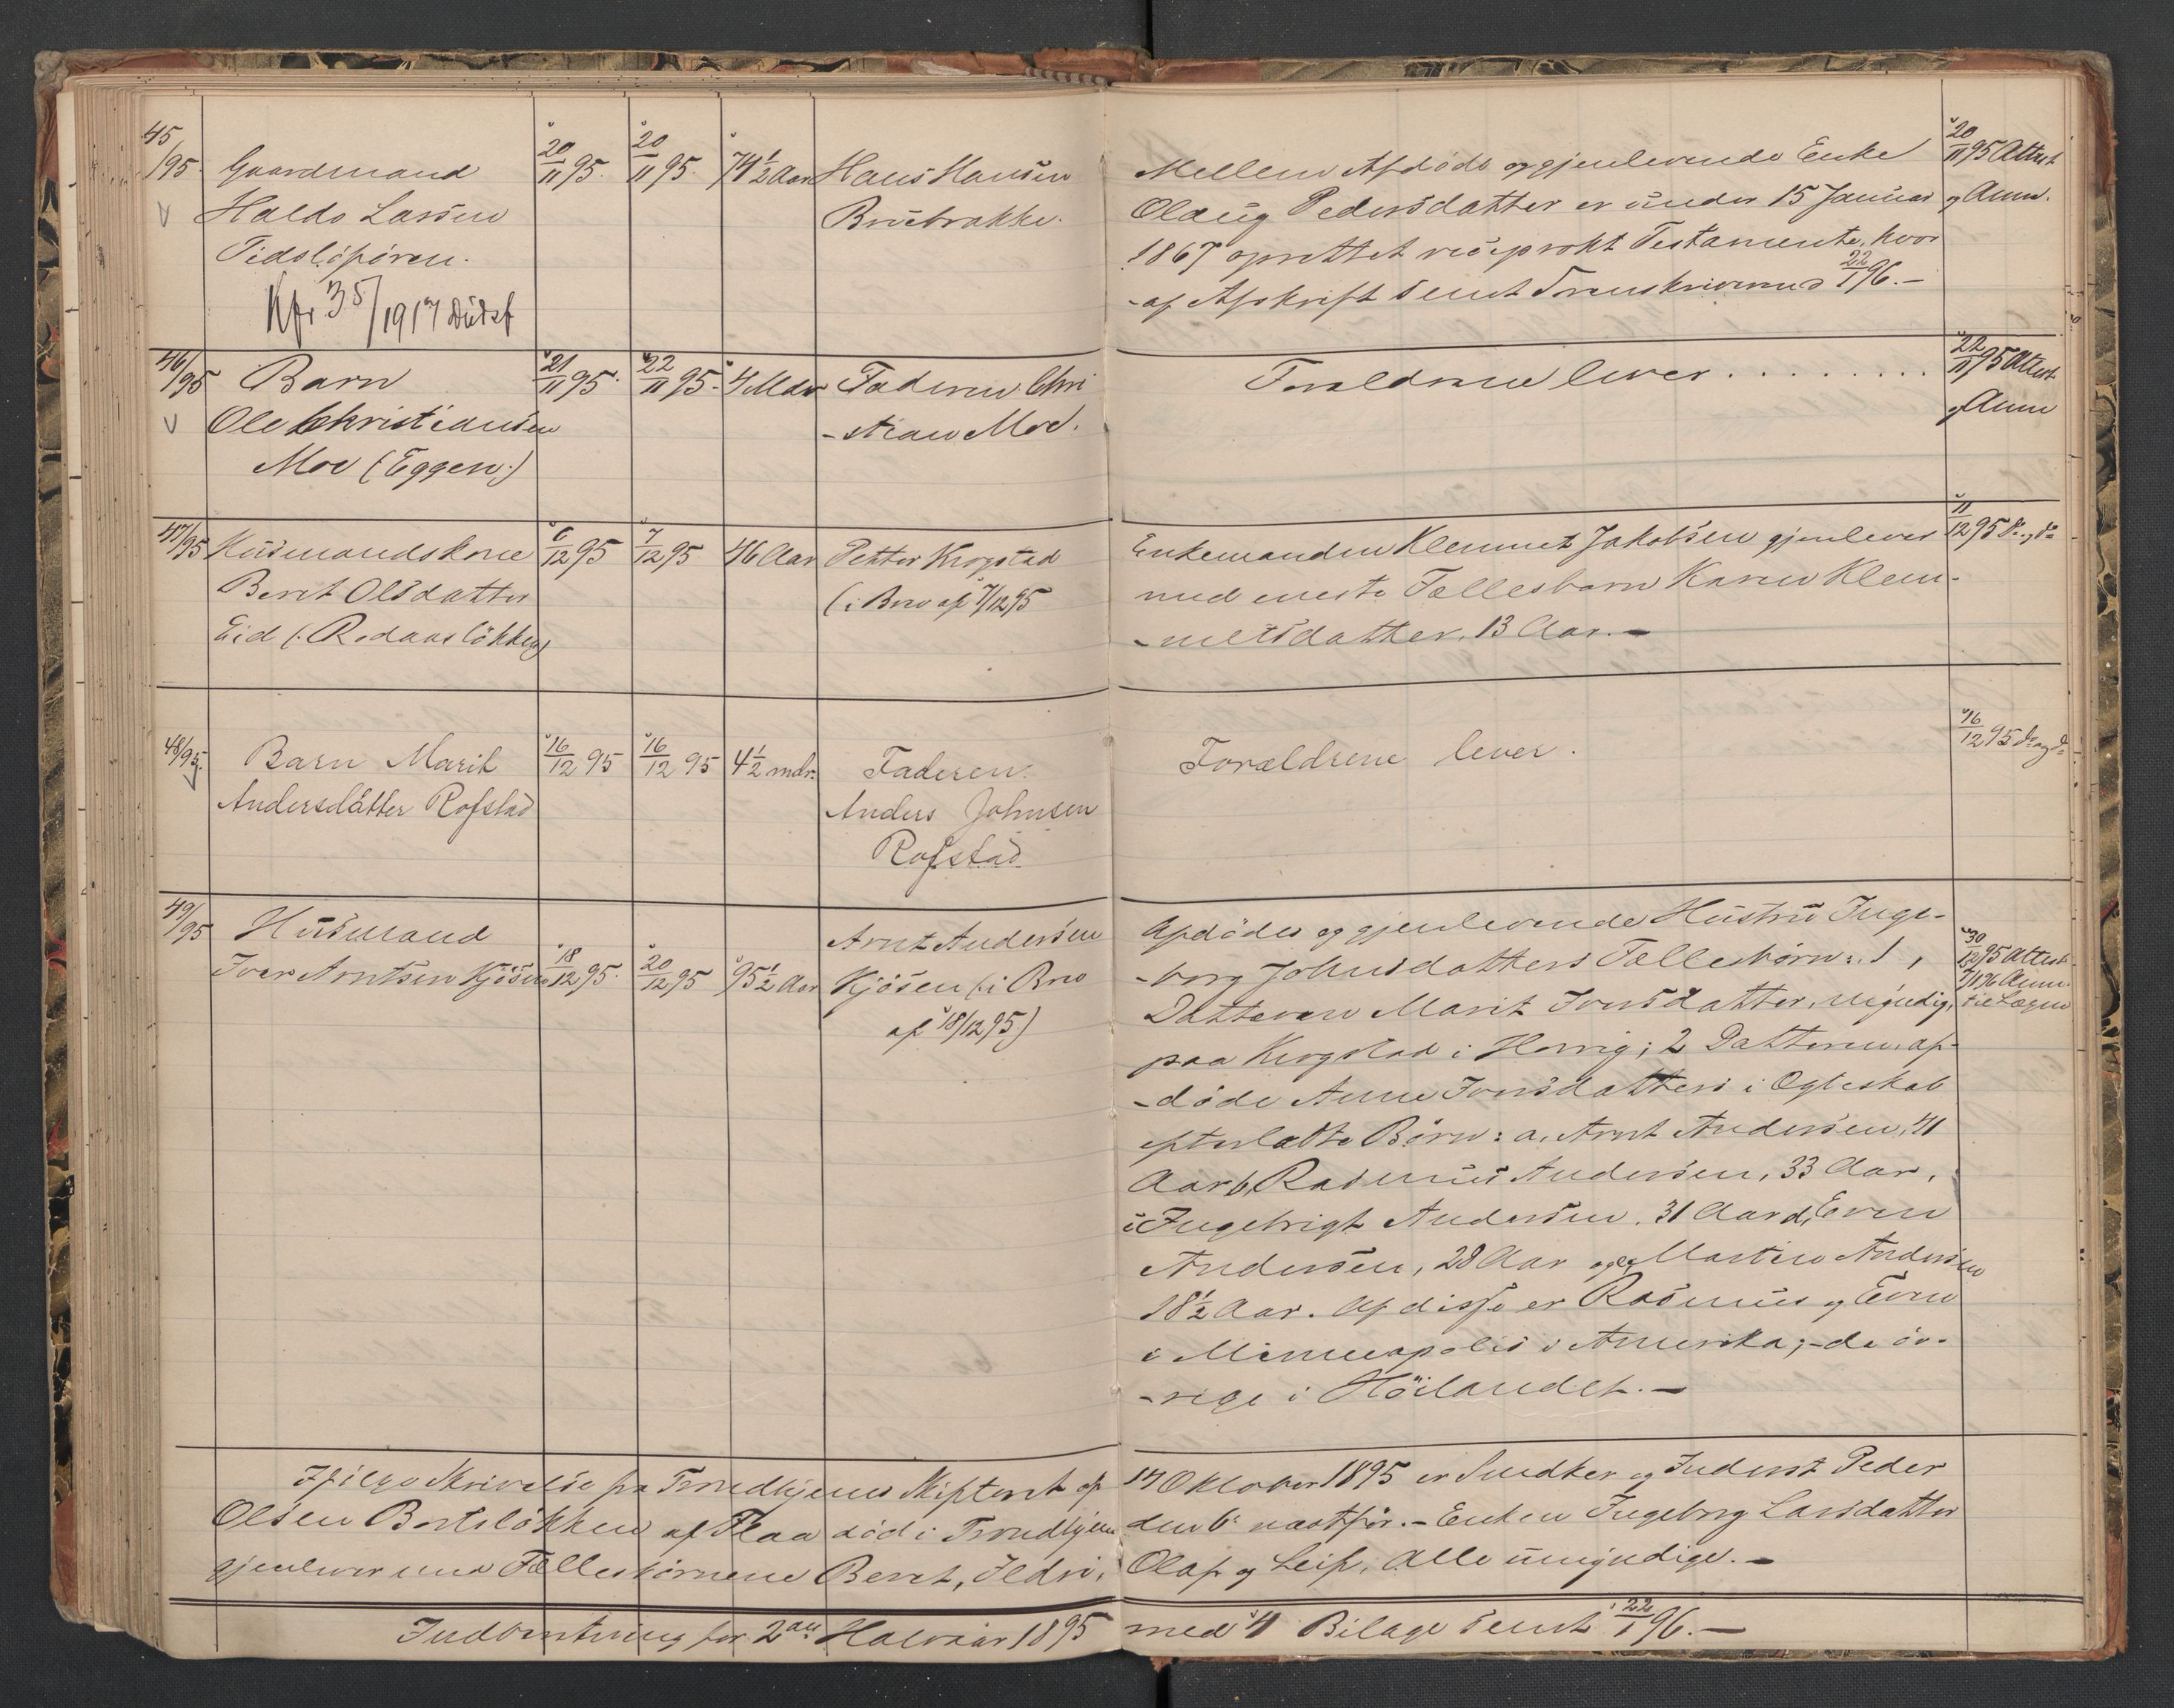 45/95. Gaardmand
Haldo Larsen
Kfr 35/1917
20/11 95.
20/11 95.
74 1/2 Aar
Hans Hansen
Mellem Afdøde og gjenlevende Enke
Olaug Pedersdatter er under 15 Januar
1867 oprettet reciprokt Testamente, hvor
-af Afskrift sendt Sorenskriveren d 22/1 96.-
20/11 95 Attest
og Anm.
46/95 Barn
Ole Christiansen
Moe (Eggen)
21/11 95.
22/11 95.
4 Mdr
Faderen Chri
-stian Moe.
Forældrene lever . . . . . . . . .
22/11 95 Attest
og Anm
47/95 Husmandskone
Beret Olsdatter
Eid (: Rodaasløkken)
6/12 95
7/12 95
46 Aar
Petter Krogstad
(i Brev af 7/12 95
Enkemanden Klemmet Jakobsen gjenlever
med eneste Fællesbarn Karen Klem-
-metsdatter, 13 Aar.-
11/12 95 do. og do
48/95. Barn Marit
Andersdatter Rofstad
16/12 95
16/12 95
4 1/2 mdr.
Faderen
Anders Johnsen
Rofstad
Forældrene lever.
16/12 95 do og do
49/95 Husmand
Iver Arntsen Kjøsen
18/12 95.
20/12 95
95 1/2 Aar
Arnt Andersen
Kjøsen (i Brev
af 18/12 95)
Afdødes og gjenlevende Hustru Inge-
-borg Johnsdatters Fællesbørn: 1,
Datteren Marit Iversdatter, myndig,
paa Krogstad i Horrig; 2 Datteren, af-
-døde Anne Iversdatters i Egteskab
efterladte Børn: a, Arnt Andersen, 41
Aar b, Rasmus Andersen, 33 Aar,
c Ingebrigt Andersen, 31 Aar d, Even
Andersen, 28 Aar og e, Martin Andersen
18 1/2 Aar. Af disse er Rasmus og Even
i Minneapolis i Amerika; -de øv-
-rige i Høilandet.-
30/12 95 Attest
7/1 96 Anm.
til
Ifølge Skrivelse fra Trondhjems Skifteret af 14 Oktober 1895 er Snedker og Inderst Peder
Olsen Bortsløkken af Flaa død i Trondhjem den 6 næstfør.- Enken Ingeborg Larsdatter
gjenlever med Fællesbørnene Beret, Ildri, Olaf og Leif, Alle umyndige.-
Indberetning for 2det Halvaar 1895 med 4 Bilage sendt 22/1 96.-